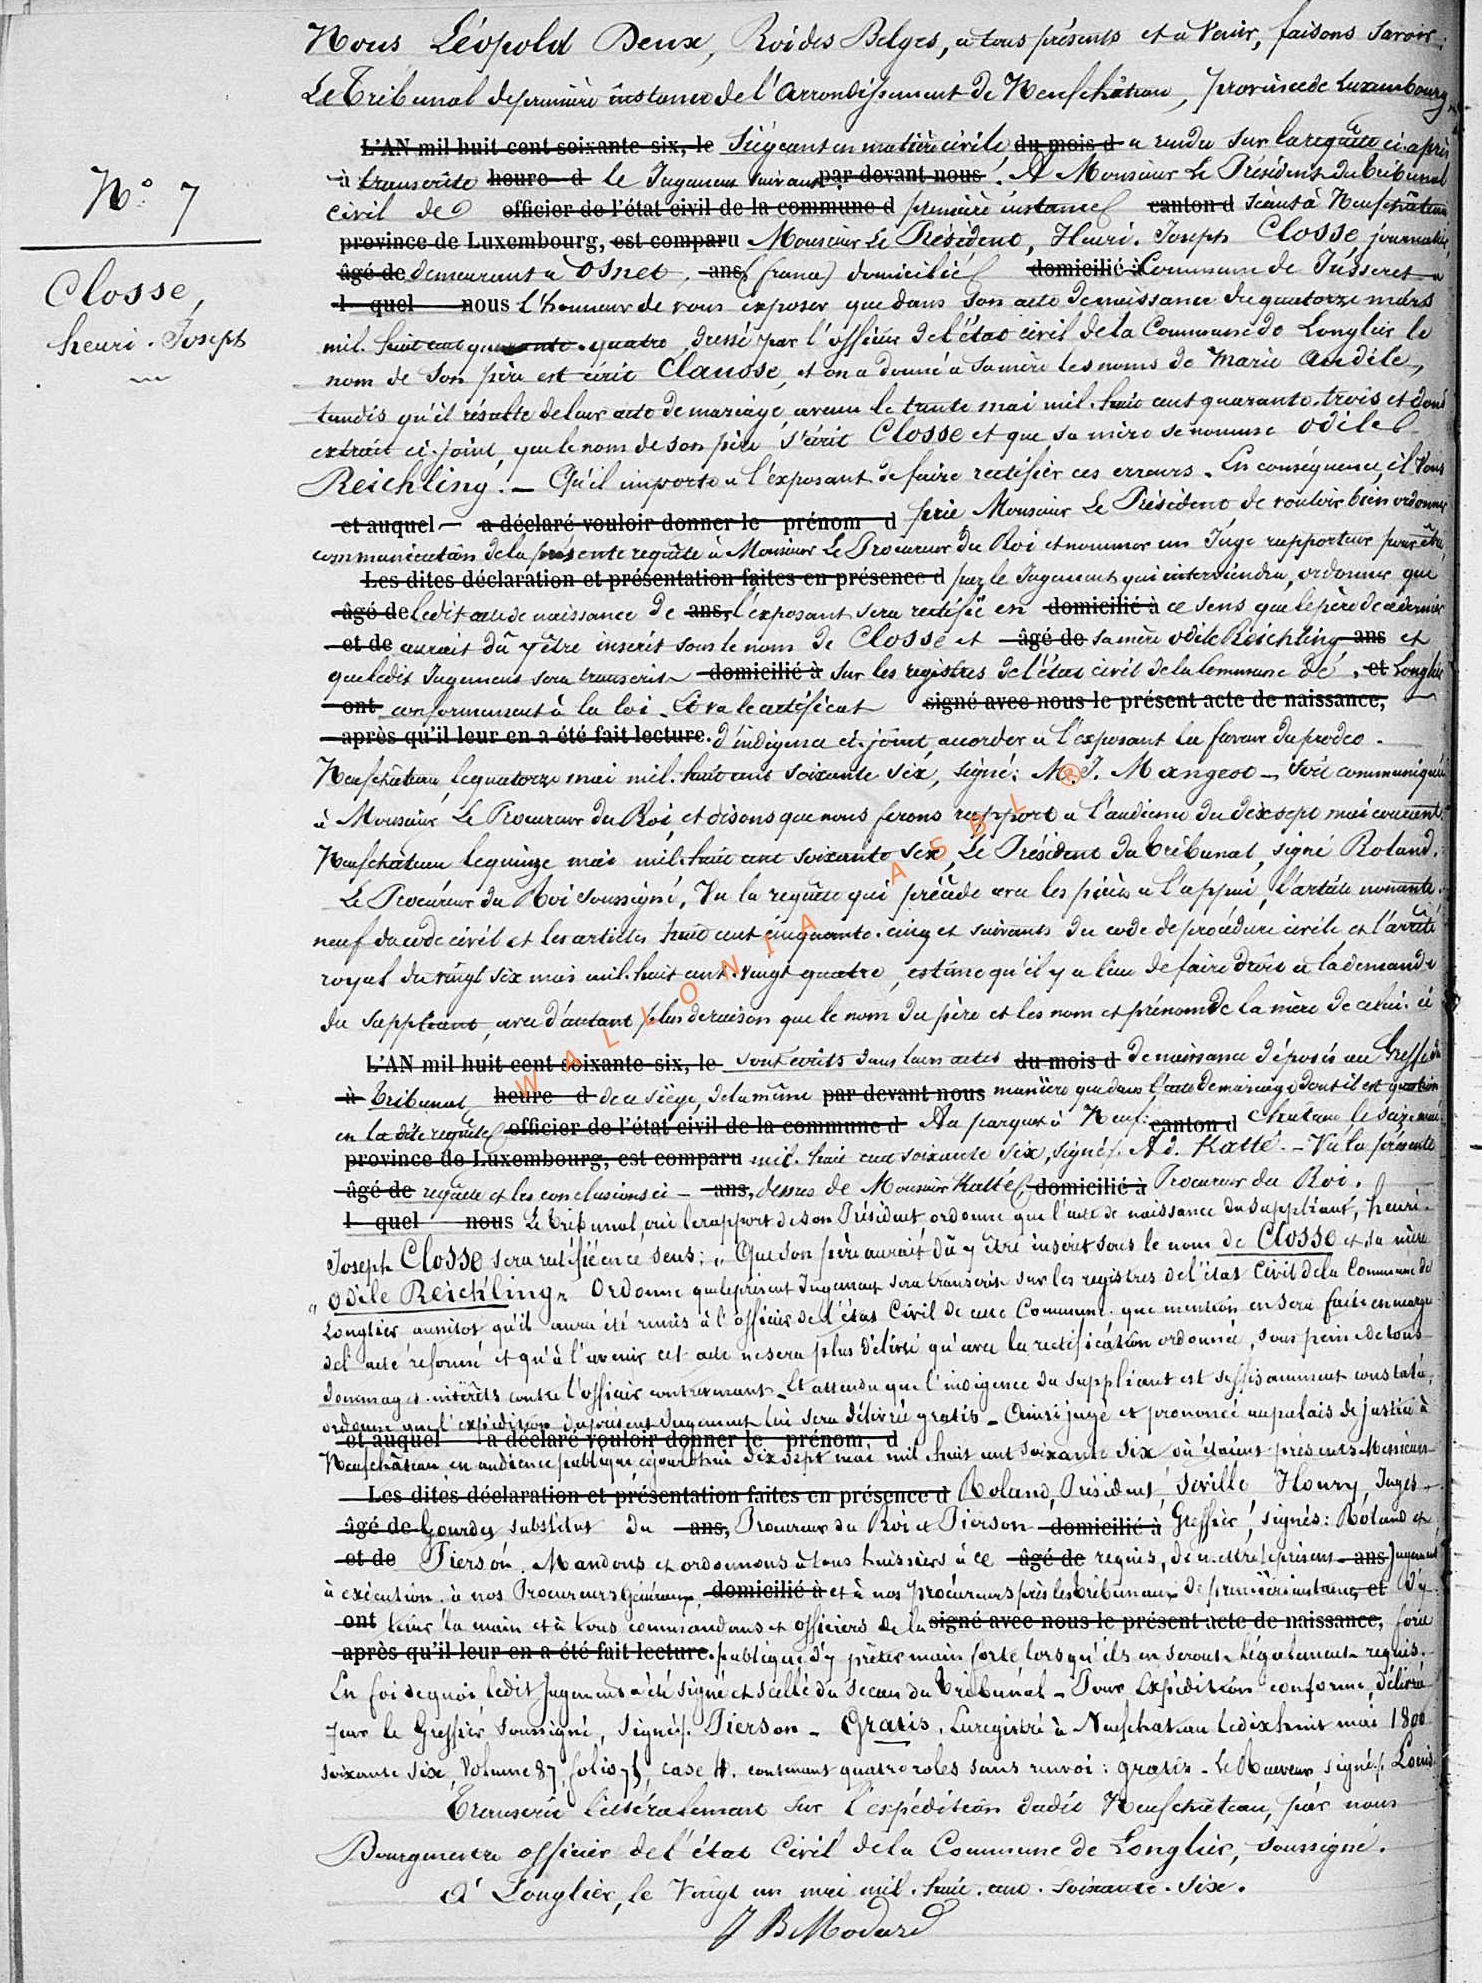 Nous Léopold Deux, Roi des Belges, à tous présents et à venir, faisons savoir:
Le Tribunal de première instance de l'Arrondissement de Neufchâteau, province de Luxembourg
L'AN mil huit cent soixante-six, le Siégeant en matière civile du mois d a rendu sur la requête ci-après
N° 7
à transcrite heure d le Jugement suivant par-devant nous: A Monsieur Le Président du tribunal
civil de officier de l'état civil de la commune d première instance canton d séant à Neufchâteau
province de Luxembourg, est comparu Monsieur Le Président, Henri-Joseph Closse, journalier
Closse,
henri-Joseph
âgé de demeurant à Osnet, ans, (france) domicilié domicilié à Commune de Jusseret a
l quel nous l'honneur de vous exposer que dans son acte de naissance du quatorze mars
mil-huit cent quarante-quatre, dressé par l'officier de l'état civil de la Commune de Longlier le
nom de son père est écrit Clausse, et on a donné à sa mère les noms de Marie Audile,
tandis qu'il résulte de leur acte de mariage avenu le trente mai mil-huit cent quarante-trois et dont
extrait ci-joint, que le nom de son père s'écrit Closse et que sa mère se nomme Odile
Reichling. — Qu'il importe à l'exposant de faire rectifier ces erreurs. En conséquence, il Vous
et auquel a déclaré vouloir donner le prénom d prie Monsieur Le Président de vouloir bien ordonner
communication de la présente requête à Monsieur Le Procureur du Roi et nommer un Juge rapporteur pour être,
Les dites déclaration et présentation faites en présence d par le Jugement qui interviendra, ordonner que
âgé de ledit acte de naissance de ans, l'exposant sera rectifié en domicilié à ce sens que le père de ce dernier
et de aurait dû y être inscrit sous le nom de Closse et âgé de sa mère Odile Reichling ans et
que ledit Jugement sera transcrit domicilié à sur les registres de l'état civil de la Commune de et Longlier
ont conformément à la loi. Et va le certificat signé avec nous le présent acte de naissance,
après qu'il leur en a été fait lecture. d'indigence ci-joint, accorder à l'exposant la faveur du prodeo.
Neufchâteau, le quatorze mai mil-huit cent soixante six, signé: J. Mangeot — Soit communiqué
à Monsieur Le Procureur du Roi, et disons que nous ferons rapport à l'audience du dix sept mai courant.
Neufchâteau le quinze mai mil-huit cent soixante six, Le Président du tribunal, signé Roland.
Le Procureur du Roi soussigné, Vu la requête qui précède avec les pièces à l'appui, l'article nonante-
neuf du code civil et les articles huit cent cinquante-cinq et suivants du code de procédure civile et l'arrêté
royal du vingt six mai mil-huit cent-vingt quatre, estime qu'il y a lieu de faire droit à la demande
du suppliant, avec d'autant plus de raison que le nom du père et les nom et prénom de la mère de celui-ci
L'AN mil huit cent soixante-six, le sont écrits dans leurs actes du mois d de naissance déposés au Greffe du
à Tribunal heure d de ce siége, de la même par devant nous manière que dans l'acte de mariage dont il est question
en la dite requête officier de l'état civil de la commune d Au parquet à Neuf- canton d château, le seize mai
province de Luxembourg, est comparu mil-huit cent soixante six, signé/. Ad. Katté. — Vu la présente
âgé de requête et les conclusions ci- ans, dessus de Monsieur Katté, domicilié à Procureur du Roi.
l quel nous Le tribunal, ouï le rapport de son Président, ordonne que l'acte de naissance du suppliant, henri-
Joseph Closse sera rectifié en ce sens: „ Que son père aurait dû y être inscrit sous le nom de Closse et sa mère
„ Odile Reichling„ Ordonne que le présent Jugement sera transcrit sur les registres de l'état Civil de la Commune de
Longlier aussitôt qu'il aura été remis à l'officier de l'état Civil de cette Commune que mention en sera faite en marge
de l'acte réformé et qu'à l'avenir cet acte ne sera plus délivré qu'avec la rectification ordonnée, sous peine de tous
dommages-intérêts contre l'officier contrevenant. Et attendu que l'indigence du suppliant est suffisamment constatée,
ordonne que l'expédition du présent Jugement lui sera délivrée gratis — Ainsi jugé et prononcé au palais de justice à
et auquel a déclaré vouloir donner le prénom d
Neufchâteau en audience publique ce jourd'hui dix sept mai mil huit cent soixante six où étaient présents Messieurs
Les dites déclaration et présentation faites en présence d Roland, Président, Seville Houry, Juges
âgé de Gourdes substitut du ans, Procureur du Roi et Pierson domicilié à Greffier, signés: Roland et
et de Pierson. Mandons et ordonnons à tous huissiers à ce âgé de requis, de mettre le présent ans Jugement
à exécution à nos Procureurs Généraux, domicilié à et à nos procureurs près les tribunaux de première instance, et d'y
ont tenir la main et à tous commandants et officiers de la signé avec nous le présent acte de naissance, force
après qu'il leur en a été fait lecture. publique d'y prêter main forte lorsqu'ils en seront légalement requis.
En foi de quoi ledit Jugement a été signé et scellé du sceau du Tribunal — Pour Expédition conforme, Délivré
par le Greffier soussigné, signé/. Pierson — Gratis. Enregistré à Neufchateau le dix huit mai 1800
soixante six, Volume 87, folio 75, case 4. contenant quatre roles sans renvoi: gratis — Le Receveur, signé/. Louis.
Transcrit littéralement sur l'expédition dudit Neufchâteau, par nous
Bourgmestre officier de l'état Civil de la Commune de Longlier, soussigné.
A Longlier, le Vingt un mai mil-huit-cent-soixante-six.
J B Modard
WALLONIA ASBL ®